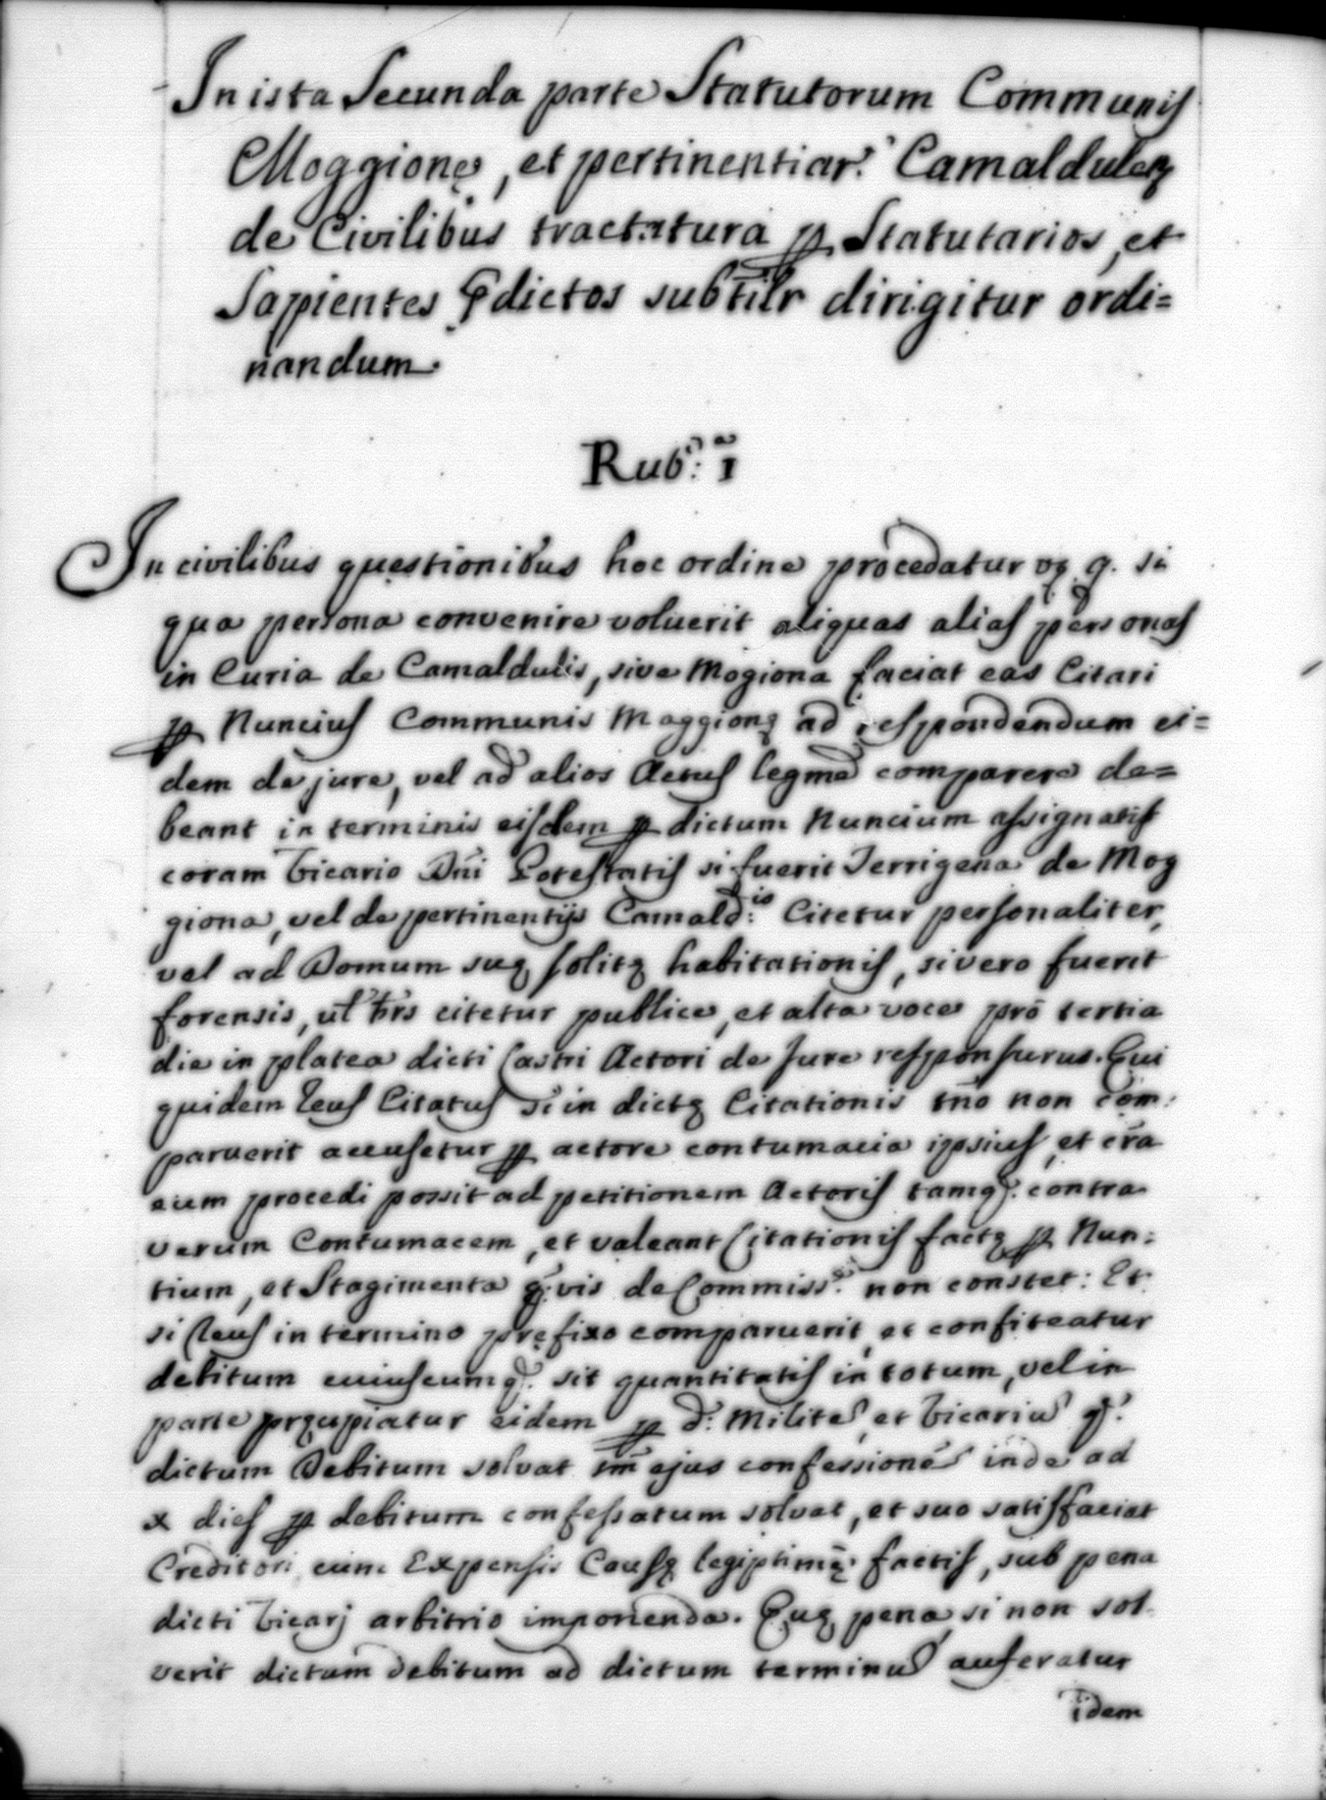 In ista Secunda parte Statutorum Communis
Moggionę, et pertinentiar: Camaldulen
de Civilibus tractatura ꝑ Statutarios, et
Sapientes p̃dictos subtilr dirigitur ordi=
nandum.
Rub: 1ª
In civilibus questionibus hoc ordine procedatur vz q. si
qua persona convenire voluerit aliquas alias personas
in Curia de Camaldulis, sive Mogiona faciat eas Citari
ꝑ Nuncius Communis Moggionę ad respondendum ei=
dem de jure, vel ad alios Actus legmẽ comparere de=
beant in terminis eisdem ꝑ dictum Nuncium assignatis
coram Vicario Dñi Potestatis si fuerit Terrigena de Mog
giona, vel de pertinentijs Camald:is Citetur personaliter,
vel ad Domum suę solitę habitationis, si vero fuerit
forensis, ul t̃rs citetur publice, et alta voce prõ tertia
die in platea dicti Castri Actori de Jure responsurus. Qui
quidem Reus Citatus si in dictę Citationis tño non com:
paruerit accusetur ꝑ actore contumacia ipsius, et cr̃a
eum procedi possit ad petitionem Actoris tamq: contra
verum Contumacem, et valeant Citationis factę ꝑ Nun:
tium, et Stagimenta q:vis de Commiss: non constet: Et
si Reus in termino prefixo comparuerit, et confiteatur
debitum cuiuscumq: sit quantitatis in totum, vel in
parte pręcipiatur eidem ꝑ d: Milite, et Vicariu q:
dictum Debitum solvat tm̃ ejus confessione inde ad
x dies ꝑ debitum confessatum solvat, et suo satisfaciat
Creditori cum Expensis Causę legiptimę factis, sub pena
dicti Vicarj arbitrio imponenda. Quę pena, si non sol
verit dictum debitum ad dictum terminu auferatur
idem